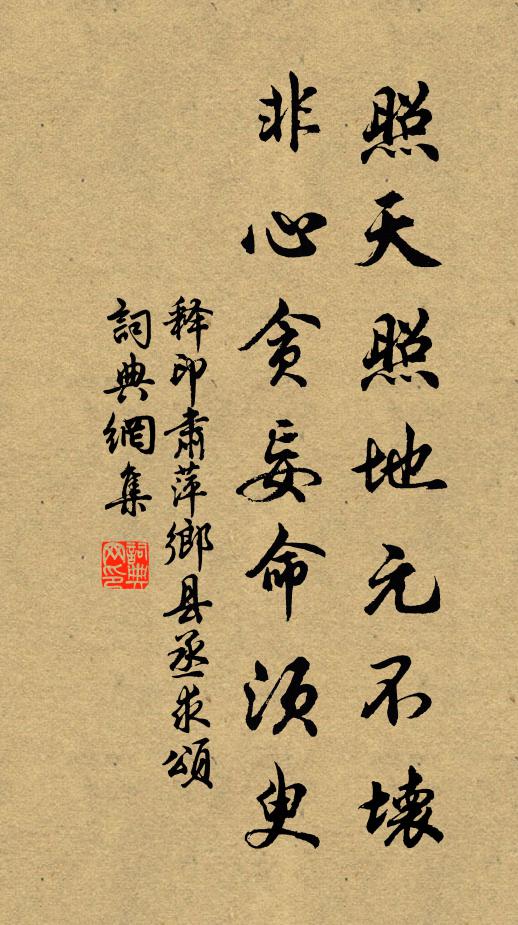 照天照地元不壞
非心貪妄命須臾
釋印肅萍鄉县丞求頌
詞典網集
詞典網印